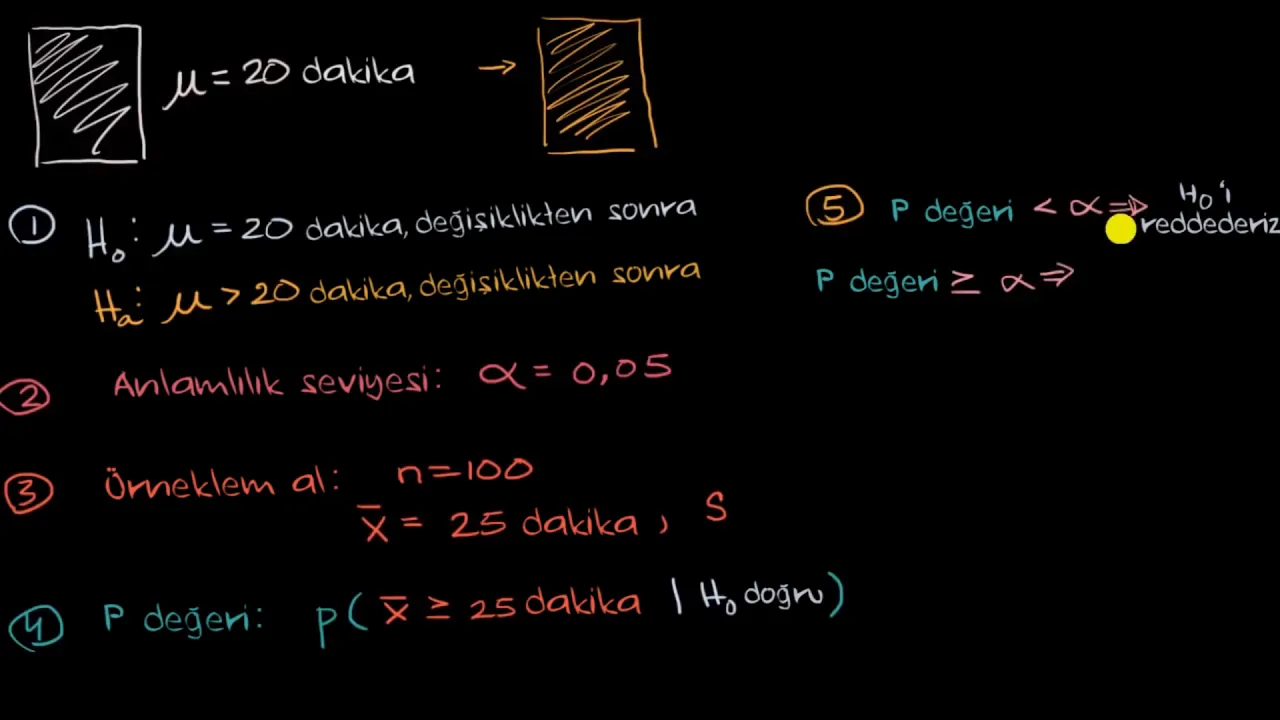 μ = 20 dakika →
① H₀: μ = 20 dakika, değişiklikten sonra
Hₐ: μ > 20 dakika, değişiklikten sonra
② Anlamlılık seviyesi: α = 0,05
③ Örneklem al: n=100
x̄ = 25 dakika, S
④ P değeri: p( x̄ ≥ 25 dakika | H₀ doğru)
⑤ P değeri < α ⇒ H₀'ı
reddederiz
P değeri ≥ α ⇒